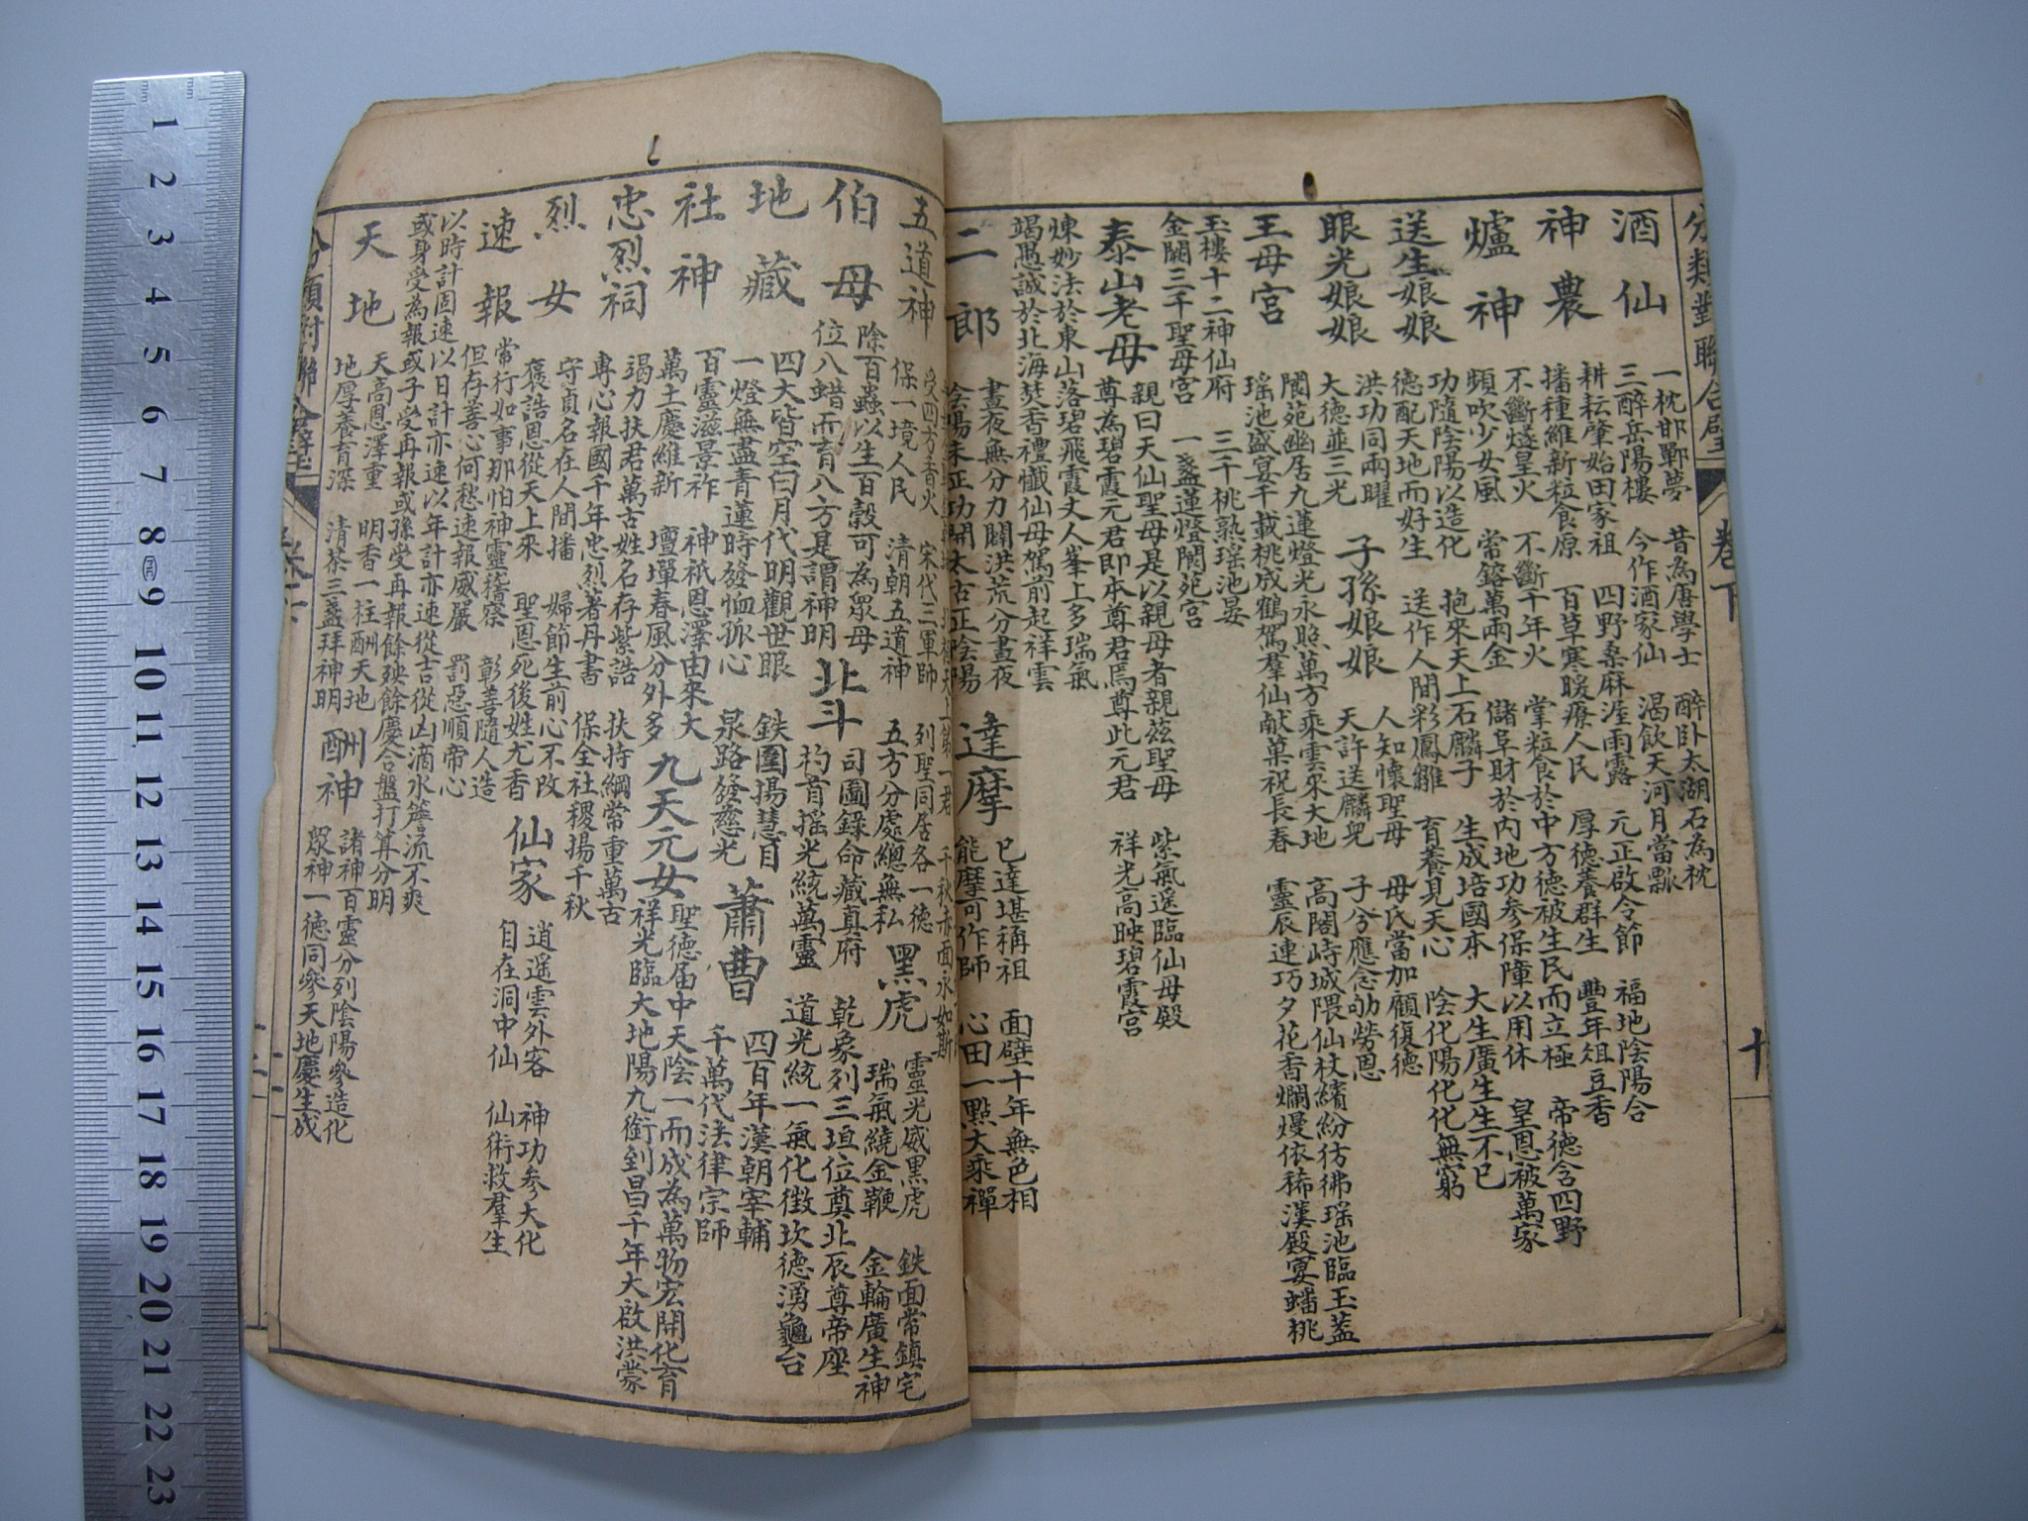 分類對聯合璧 卷下 十
酒仙
一枕邯鄲夢 昔為唐學士 醉卧太湖石為枕 福地陰陽合
三醉岳陽樓 今作酒家仙 渴飲天河月當瓢
神農
耕耘肇始田家祖 四野桑麻渥雨露 元正啟令節 豐年俎豆香
播種維新粒食原 百草寒暖療人民 厚德養群生 帝德含四野
爐神
不斷燧皇火 不斷千年火 掌粒食於中方德被生民而立極 皇恩被萬家
頻吹少女風 常鎔萬兩金 儲阜財於內地功參保障以用休
送生娘娘
功隨陰陽以造化 抱來天上石麟子 生成培國本 大生廣生生不已
德配天地而好生 送作人間彩鳳雛 育養見天心 陰化陽化化無窮
眼光娘娘
洪功同兩曜
大德並三光
子孫娘娘
人知懷聖母 母氏當加顧復德
天許送麟兒 子兮應念劬勞恩
王母宮
閬苑幽居九蓮燈光永照萬方乘雲來大地 高閣峙城隈仙杖繽紛彷彿瑤池臨玉蓋
瑤池盛宴千載桃成鶴駕羣仙献菓祝長春 靈辰連巧夕花香爛熳依稀漢殿宴蟠桃
玉樓十二神仙府 三千桃熟瑤池宴
金闕三千聖母宮 一盞蓮燈閬苑宮
泰山老母
親曰天仙聖母是以親母者親茲聖母 紫氣遥臨仙母殿
尊為碧霞元君即本尊君焉尊此元君 祥光高映碧霞宮
煉妙法於東山落碧飛霞丈人峯上多瑞氣
竭愚誠於北海焚香禮懺仙母駕前起祥雲
二郎
晝夜無分力闢洪荒分晝夜
陰陽未正功開太古正陰陽
達摩
已達堪稱祖 面壁十年無色相
能摩可作師 心田一點大乘禪
五道神
受四方香火 宋代三軍帥 列聖同居各一德
保一境人民 清朝五道神 五方分處總無私
黑虎
靈光威黑虎 鉄面常鎮宅
瑞氣繞金鞭 金輪廣生神
伯母
除百蟲以生百穀可為眾母
位八蜡而育八方是謂神明
北斗
司圖錄命藏真府 乾象列三垣位奠北辰尊帝座
杓首搖光統萬靈 道光統一氣化徵坎德湧龜台
地藏
四大皆空曰月代明觀世眼 鉄圍揚慧目
一燈無盡青蓮時發恤孤心 泉路發慈光
蕭曹
四百年漢朝宰輔
千萬代法律宗師
社神
百靈滋景祚 神祇恩澤由來大
萬土慶維新 壇墠春風分外多
九天元女
聖德届中天陰一而成為萬物宏開化育
祥光臨大地陽九銜到昌千年大啟洪蒙
忠烈祠
竭力扶君萬古姓名存紫誥 扶持綱常重萬古
專心報國千年忠烈著丹書 保全社稷揚千秋
烈女
守貞名在人間播 婦節生前心不改
褒誥恩從天上來 聖恩死後姓尤香
仙家
逍遥雲外客 神功參大化
自在洞中仙 仙術救羣生
速報
常行如事那怕神靈稽察 彰善隨人造
但存善心何愁速報威嚴 罰惡順帝心
以時計固速以日計亦速以年計亦速從吉從凶滴水簷流不爽
或身受為報或子受再報或孫受再報餘殃餘慶合盤打算分明
天地
天高恩澤重 明香一柱酬天地
地厚養育深 清茶三盞拜神明
酬神
諸神百靈分列陰陽參造化
眾神一德同參天地慶生成
1
2
3
4
5
6
7
8
9
10
11
12
13
14
15
16
17
18
19
20
21
22
23